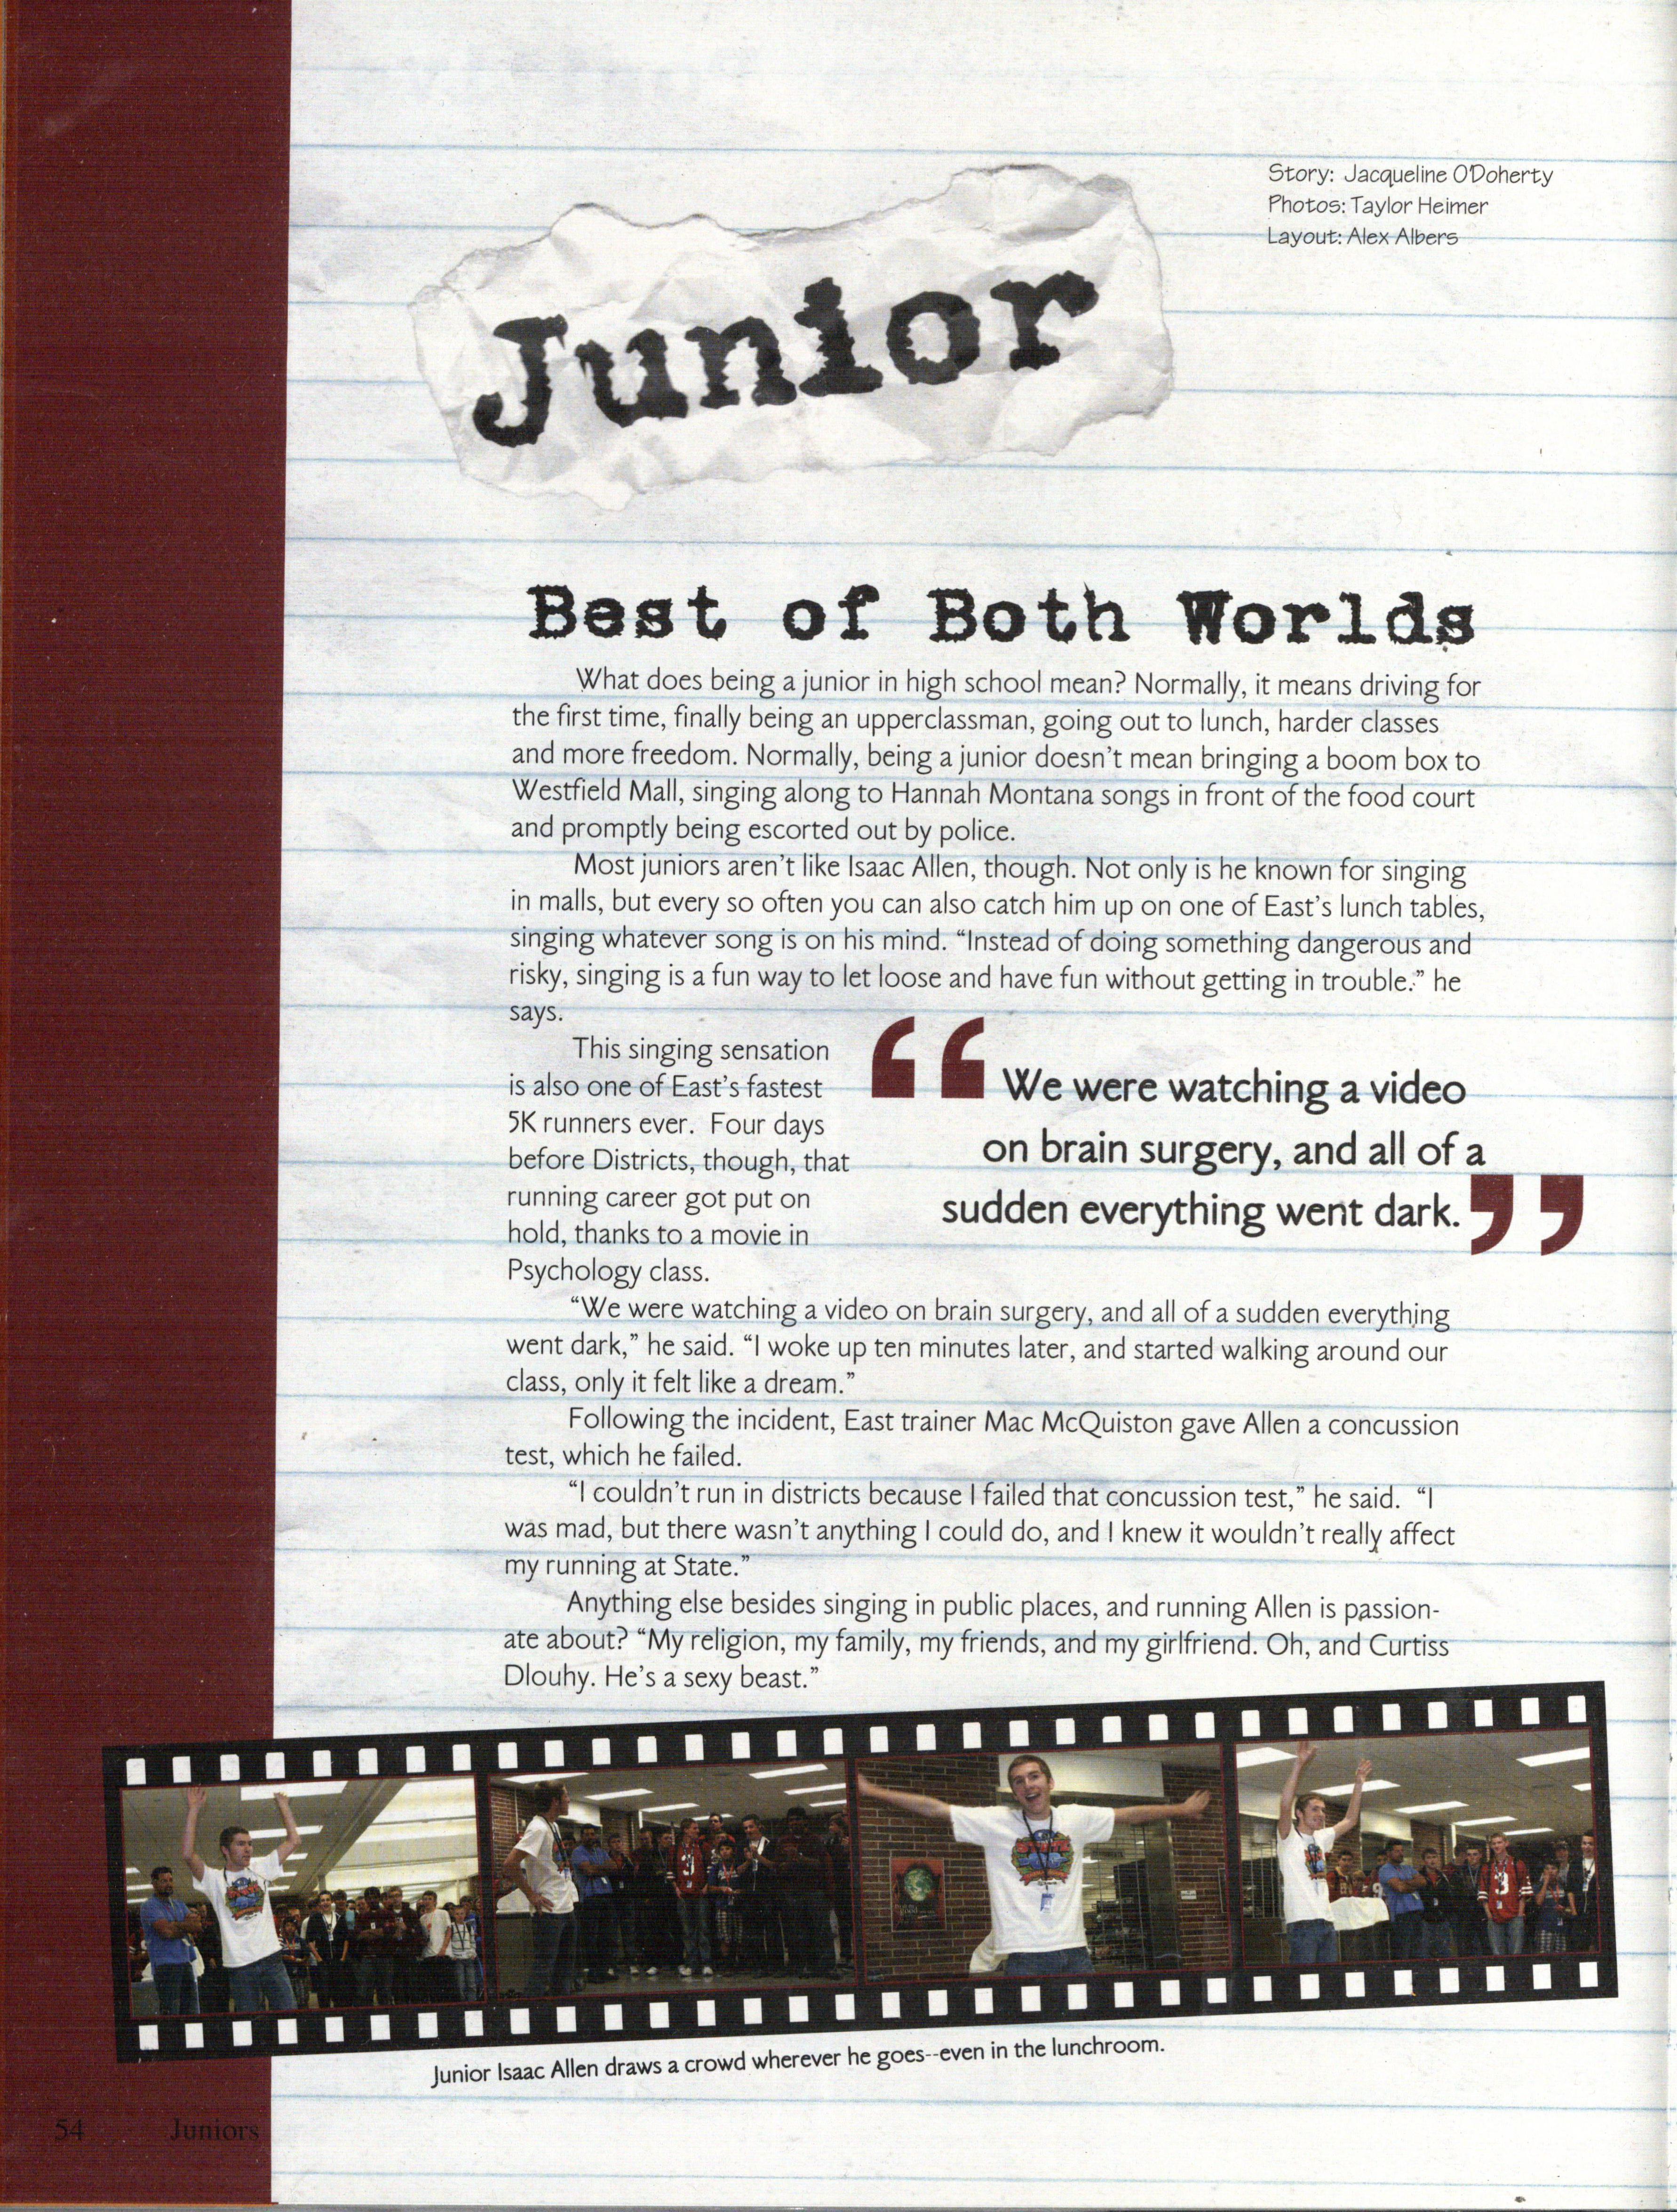 Story: Jacqueline O'Doherty
Photos: Taylor Heimer
Layout: Alex Albers
Junior
Best of Both Worlds
What does being a junior in high school mean? Normally, it means driving for
the first time, finally being an upperclassman, going out to lunch, harder classes
and more freedom. Normally, being a junior doesn't mean bringing a boom box to
Westfield Mall, singing along to Hannah Montana songs in front of the food court
and promptly being escorted out by police.
Most juniors aren't like Isaac Allen, though. Not only is he known for singing
in malls, but every so often you can also catch him up on one of East's lunch tables,
singing whatever song is on his mind. “Instead of doing something dangerous and
risky, singing is a fun way to let loose and have fun without getting in trouble.” he
says.
This singing sensation
is also one of East's fastest
5K runners ever. Four days
before Districts, though, that
running career got put on
hold, thanks to a movie in
Psychology class.
“We were watching a video
on brain surgery, and all of a
sudden everything went dark.”
“We were watching a video on brain surgery, and all of a sudden everything
went dark,” he said. “I woke up ten minutes later, and started walking around our
class, only it felt like a dream.”
Following the incident, East trainer Mac McQuiston gave Allen a concussion
test, which he failed.
“I couldn't run in districts because I failed that concussion test,” he said. “I
was mad, but there wasn't anything I could do, and I knew it wouldn't really affect
my running at State.”
Anything else besides singing in public places, and running Allen is passion-
ate about? “My religion, my family, my friends, and my girlfriend. Oh, and Curtiss
Dlouhy. He's a sexy beast.”
Junior Isaac Allen draws a crowd wherever he goes--even in the lunchroom.
54 Juniors